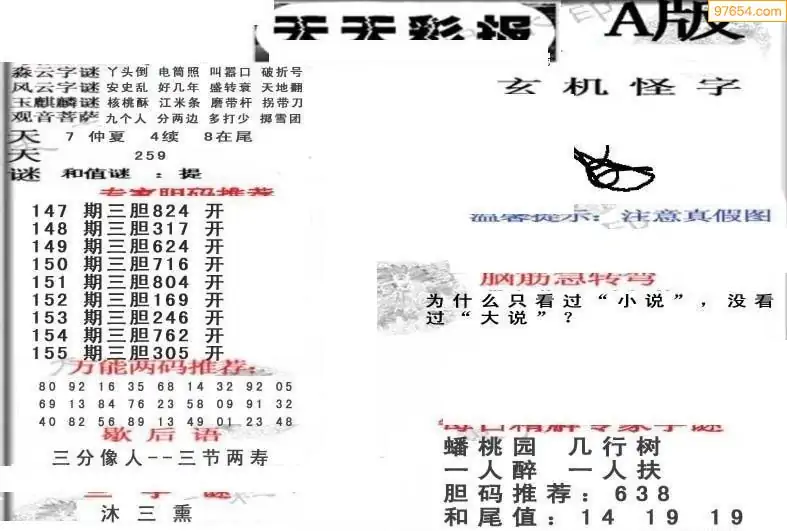 天天彩报
A版
97654.com
森云字谜 丫头倒 电筒照 叫嚣口 破折号
风云字谜 安史乱 好几年 盛转衰 天地翻
玉麒麟谜 核桃酥 江米条 磨带杆 拐带刀
观音菩萨 九个人 分两边 多打少 掷雪团
天 7 仲夏 4续 8在尾
天 259
谜 和值谜 : 提
专家胆码推荐
147 期三胆824 开
148 期三胆317 开
149 期三胆624 开
150 期三胆716 开
151 期三胆804 开
152 期三胆169 开
153 期三胆246 开
154 期三胆762 开
155 期三胆305 开
万能两码推荐:
80 92 16 35 68 14 32 92 05
69 13 84 76 23 58 09 91 32
40 82 56 89 13 49 01 23 48
歇后语
三分像人--三节两寿
三字谜
沐三熏
玄机怪字
温馨提示: 注意真假图
脑筋急转弯
为什么只看过“小说”, 没看
过“大说”?
每日精解专家字谜
蟠桃园 几行树
一人醉 一人扶
胆码推荐: 638
和尾值: 14 19 19